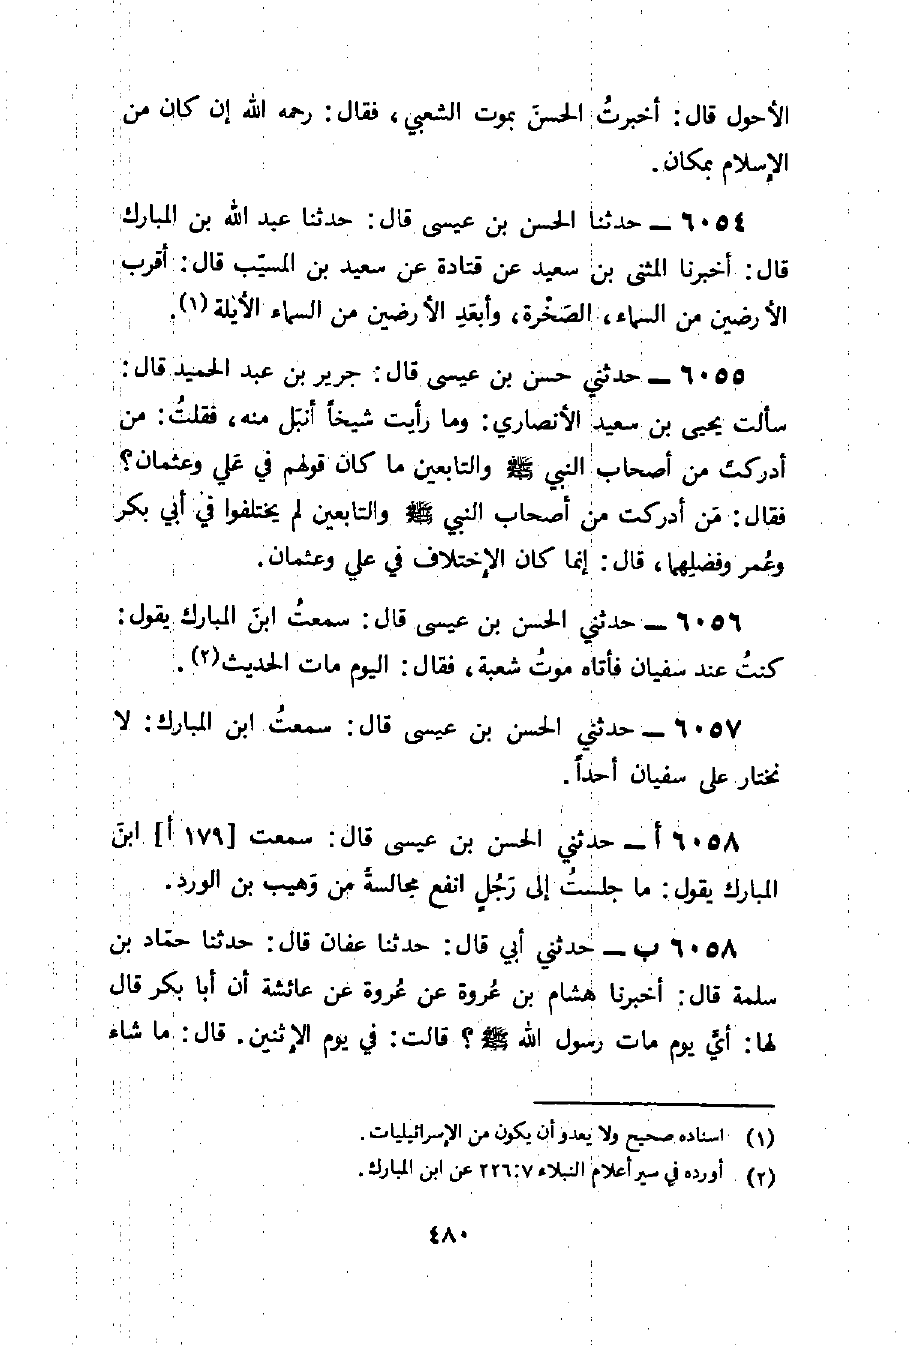 الأحول قال: أخبرتُ الحسنَ بموت الشعبي، فقال: رحمه الله إن كان من
الإسلام بمكان.
٦٠٥٤ ــ حدثنا الحسن بن عيسى قال: حدثنا عبد الله بن المبارك
قال: أخبرنا المثنى بن سعيد عن قتادة عن سعيد بن المسيّب قال: أقرب
الأرضين من السماء، الصَخْرة، وأبعَدِ الأرضين من السماء الأيلة(١).
٦٠٥٥ ــ حدثني حسن بن عيسى قال: جرير بن عبد الحميد قال:
سألت يحيى بن سعيد الأنصاري: وما رأيت شيخاً أنبَل منه، فقلتُ: من
أدركتَ من أصحاب النبي ﷺ والتابعين ما كان قولهم في عَلي وعثمان؟
فقال: مَن أدركت من أصحاب النبي ﷺ والتابعين لم يختلفوا في أبي بكر
وعُمر وفضلِهما، قال: إنما كان الإختلاف في علي وعثمان.
٦٠٥٦ ــ حدثني الحسن بن عيسى قال: سمعتُ ابنَ المبارك يقول:
كنتُ عند سفيان فأتاه موتُ شعبة، فقال: اليوم مات الحديث(٢).
٦٠٥٧ ــ حدثني الحسن بن عيسى قال: سمعتُ ابن المبارك: لا
نختار على سفيان أحداً.
٦٠٥٨ أ ــ حدثني الحسن بن عيسى قال: سمعت [١٧٩ أ] ابنَ
المبارك يقول: ما جلستُ إلى رَجُلٍ انفع مجالسةً مِن وَهيب بن الورد.
٦٠٥٨ ب ــ حدثني أبي قال: حدثنا عفان قال: حدثنا حمّاد بن
سلمة قال: أخبرنا هشام بن عُروة عن عُروة عن عائشة أن أبا بكر قال
لها: أيَّ يوم مات رسول الله ﷺ؟ قالت: في يوم الإثنين. قال: ما شاء
(١) اسناده صحيح ولا يعدو أن يكون من الإسرائيليات.
(٢) أورده في سير أعلام النبلاء ٢٢٦:٧ عن ابن المبارك.
٤٨٠